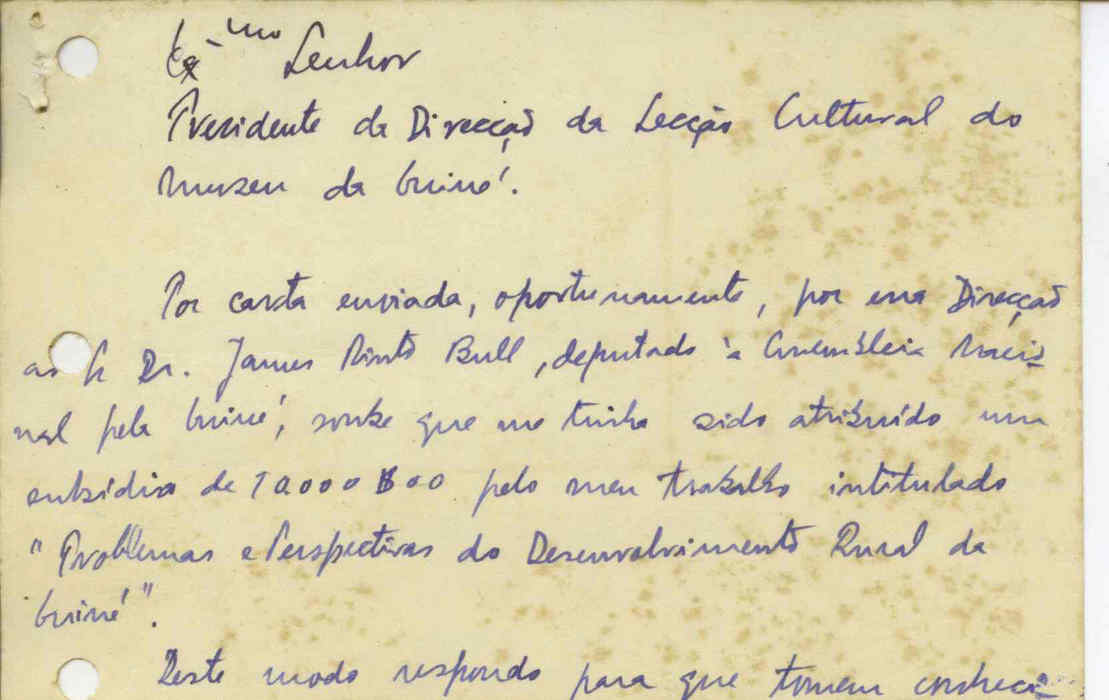 Exmo Senhor
Presidente da Direcção da Secção Cultural do
Museu da Guiné.
Por carta enviada, oportunamente, por essa Direcção
ao Sr Dr. James Pinto Bull, deputado à Assembleia Nacio
nal pela Guiné, soube que me tinha sido atribuído um
subsídio de 10000$00 pelo meu trabalho intitulado
"Problemas e Perspectivas do Desenvolvimento Rural da
Guiné".
Deste modo respondo para que tomem conheci